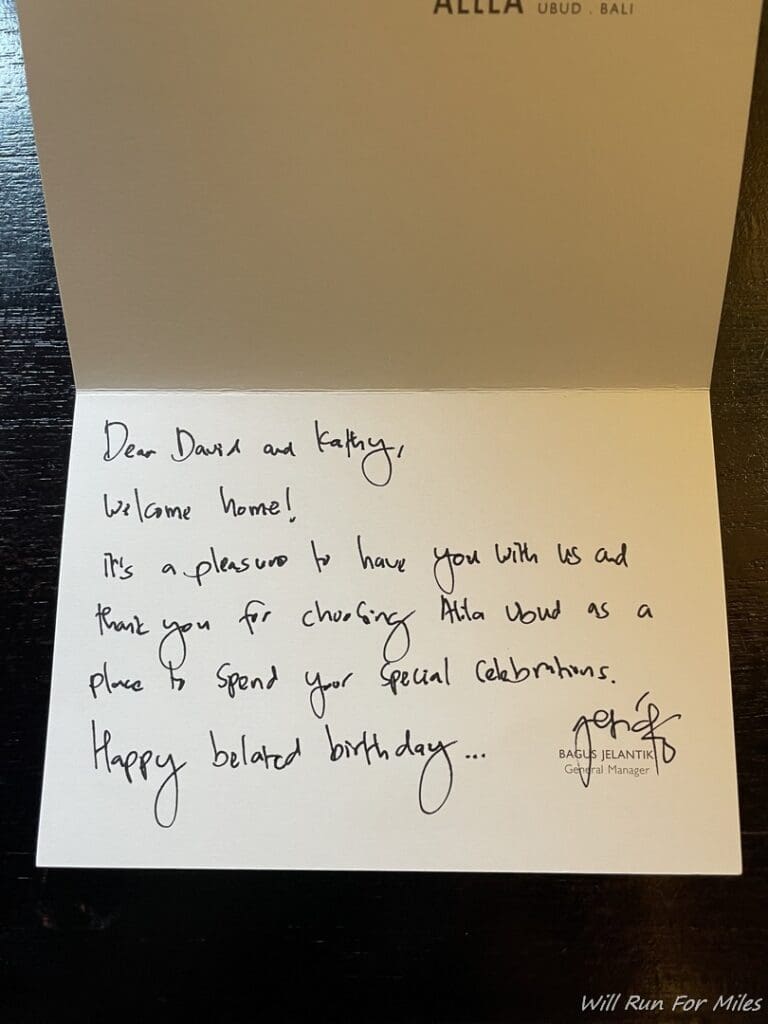 ALILA UBUD . BALI
Dear David and Kathy,
Welcome home!
it's a pleasure to have you with us and
thank you for choosing Alila Ubud as a
place to spend your special celebrations.
Happy belated birthday...
BAGUS JELANTIK
General Manager
Will Run For Miles